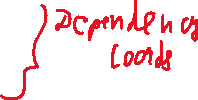 Dependency
Coords